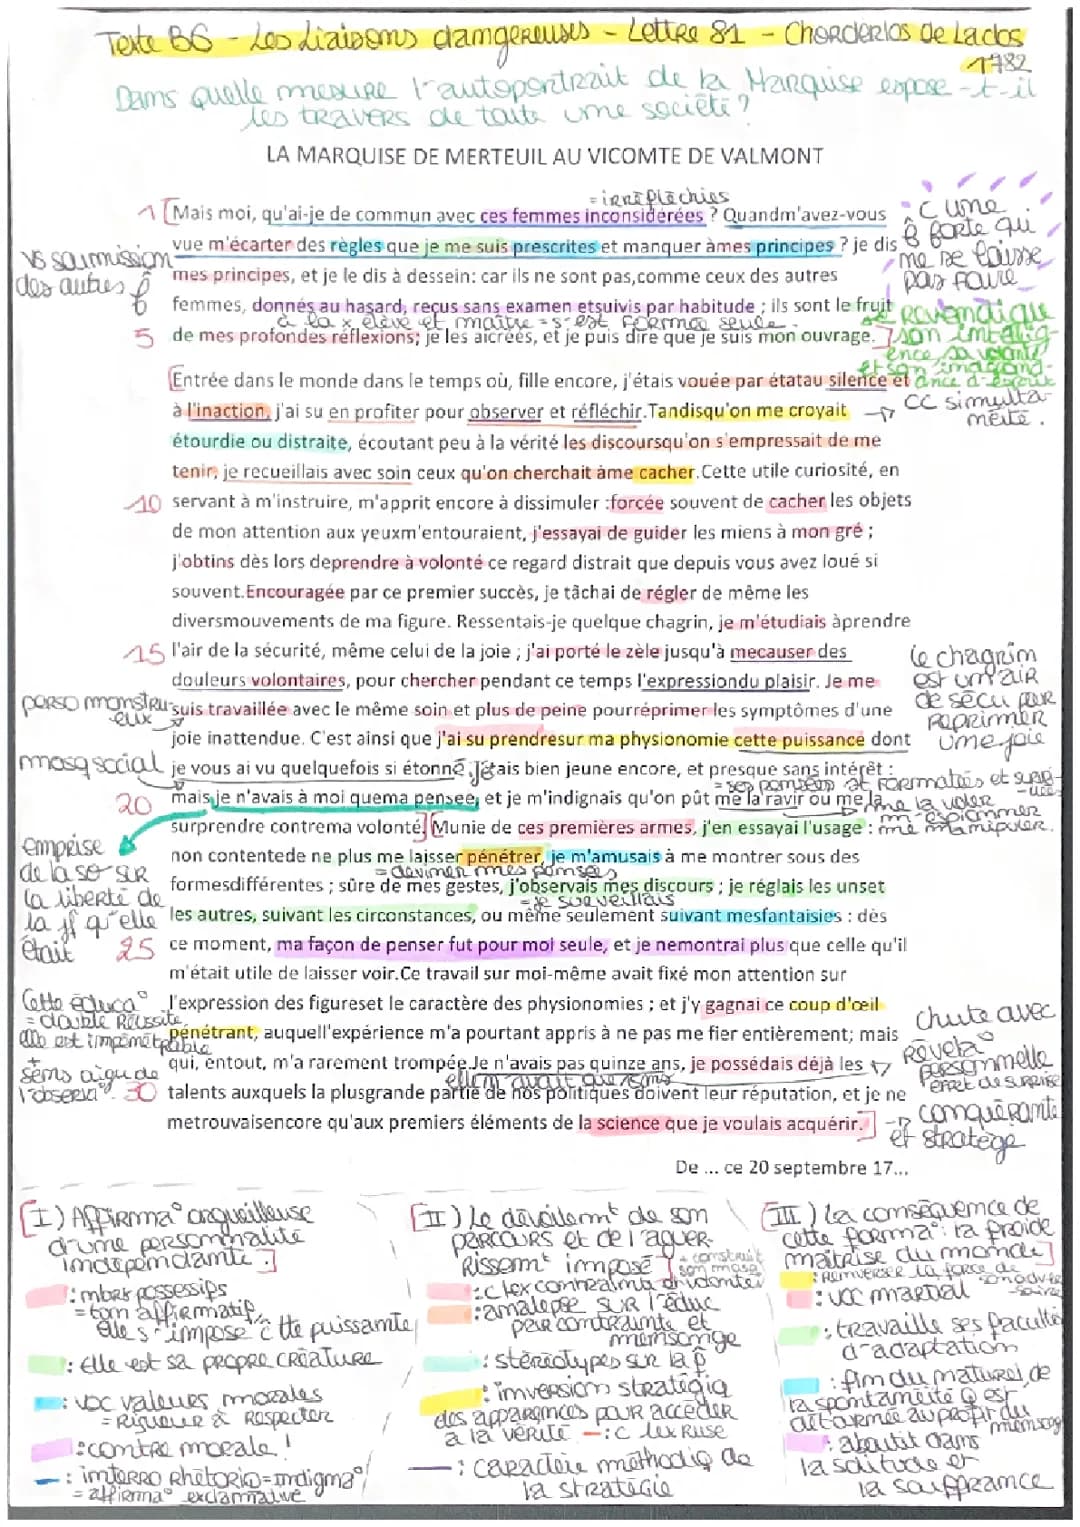 Texte B6 - Les Liaisons dangereuses - Lettre 81 - Choderlos de Laclos
1782
Dans quelle mesure l'autoportrait de la Marquise expose-t-il
les travers de toute une société ?
LA MARQUISE DE MERTEUIL AU VICOMTE DE VALMONT
= irréfléchies
1 [Mais moi, qu'ai-je de commun avec ces femmes inconsidérées ? Quandm'avez-vous
vue m'écarter des règles que je me suis prescrites et manquer àmes principes ? je dis
mes principes, et je le dis à dessein: car ils ne sont pas,comme ceux des autres
femmes, donnés au hasard, reçus sans examen etsuivis par habitude ; ils sont le fruit
à la x élève et maître = s'est formée seule.
5 de mes profondes réflexions; je les aicréés, et je puis dire que je suis mon ouvrage.]
vs soumission
des autres f
c une
f forte qui
ne se laisse
pas faire
revendique
son intellig-
ence, sa volonté
et son
[Entrée dans le monde dans le temps où, fille encore, j'étais vouée par étatau silence et
à l'inaction, j'ai su en profiter pour observer et réfléchir.Tandisqu'on me croyait
CC simulta-
néité.
étourdie ou distraite, écoutant peu à la vérité les discoursqu'on s'empressait de me
tenir, je recueillais avec soin ceux qu'on cherchait àme cacher.Cette utile curiosité, en
10 servant à m'instruire, m'apprit encore à dissimuler :forcée souvent de cacher les objets
de mon attention aux yeuxm'entouraient, j'essayai de guider les miens à mon gré ;
j'obtins dès lors deprendre à volonté ce regard distrait que depuis vous avez loué si
souvent.Encouragée par ce premier succès, je tâchai de régler de même les
diversmouvements de ma figure. Ressentais-je quelque chagrin, je m'étudiais àprendre
15 l'air de la sécurité, même celui de la joie ; j'ai porté le zèle jusqu'à mecauser des
douleurs volontaires, pour chercher pendant ce temps l'expressiondu plaisir. Je me
suis travaillée avec le même soin et plus de peine pourréprimer les symptômes d'une
joie inattendue. C'est ainsi que j'ai su prendresur ma physionomie cette puissance dont
le chagrin
est un air
de sécu pour
réprimer
une joie
perso monstru-
eux
masq social
je vous ai vu quelquefois si étonné. J'étais bien jeune encore, et presque sans intérêt :
= ses pensées st formatées et
20 mais je n'avais à moi quema pensée, et je m'indignais qu'on pût me la ravir ou me la
me la voler
m'espionner
me manipuler.
surprendre contrema volonté.] [Munie de ces premières armes, j'en essayai l'usage :
non contentede ne plus me laisser pénétrer, je m'amusais à me montrer sous des
= deviner mes pensées
formesdifférentes ; sûre de mes gestes, j'observais mes discours ; je réglais les unset
= je surveillais
les autres, suivant les circonstances, ou même seulement suivant mesfantaisies : dès
25 ce moment, ma façon de penser fut pour moi seule, et je nemontrai plus que celle qu'il
m'était utile de laisser voir.Ce travail sur moi-même avait fixé mon attention sur
emprise
de la so sur
la liberté de
la jf qu'elle
était
l'expression des figureset le caractère des physionomies ; et j'y gagnai ce coup d'œil
pénétrant, auquell'expérience m'a pourtant appris à ne pas me fier entièrement; mais
qui, entout, m'a rarement trompée.Je n'avais pas quinze ans, je possédais déjà les
elle n'avait que 15ans
30 talents auxquels la plusgrande partie de nos politiques doivent leur réputation, et je ne
metrouvaisencore qu'aux premiers éléments de la science que je voulais acquérir.]
Cette éduca°
= double réussite
elle est impénétrable
+
sens aigu de
l'observa°.
chute avec
révéla°
personnelle
effet de surprise
→ conquérante
et stratège
De ... ce 20 septembre 17...
[I) Affirma° orgueilleuse
d'une personnalité
indépendante.]
: mbrx possessifs
= ton affirmatif,
elle s'impose c tte puissante
: Elle est sa propre créature
: voc valeurs morales
= Rigueur & Respecter
: contre morale !
: interro rhétoriq = indigna°
= affirma° exclamative
[II) Le dévoilemt de son
parcours et de l'aguer-
rissemt imposé]
+ construit
son masq
: c lex contraint d volonté
: analepse sur l'éduc
par contrainte et
mensonge
: stéréotypes sur la f
: inversion stratégiq
des apparences pour accéder
à la vérité - : c lex Ruse
: caractère méthodiq de
la stratégie
[III) La conséquence de
cette forma° : la froide
maîtrise du monde]
: Renverser la force de
son adver-
saire
: voc martial
: travaille ses facultés
d'adaptation
: fin du naturel, de
la spontanéité q est
détournée au profit du
mensonge
: aboutit dans
la solitude et
la souffrance